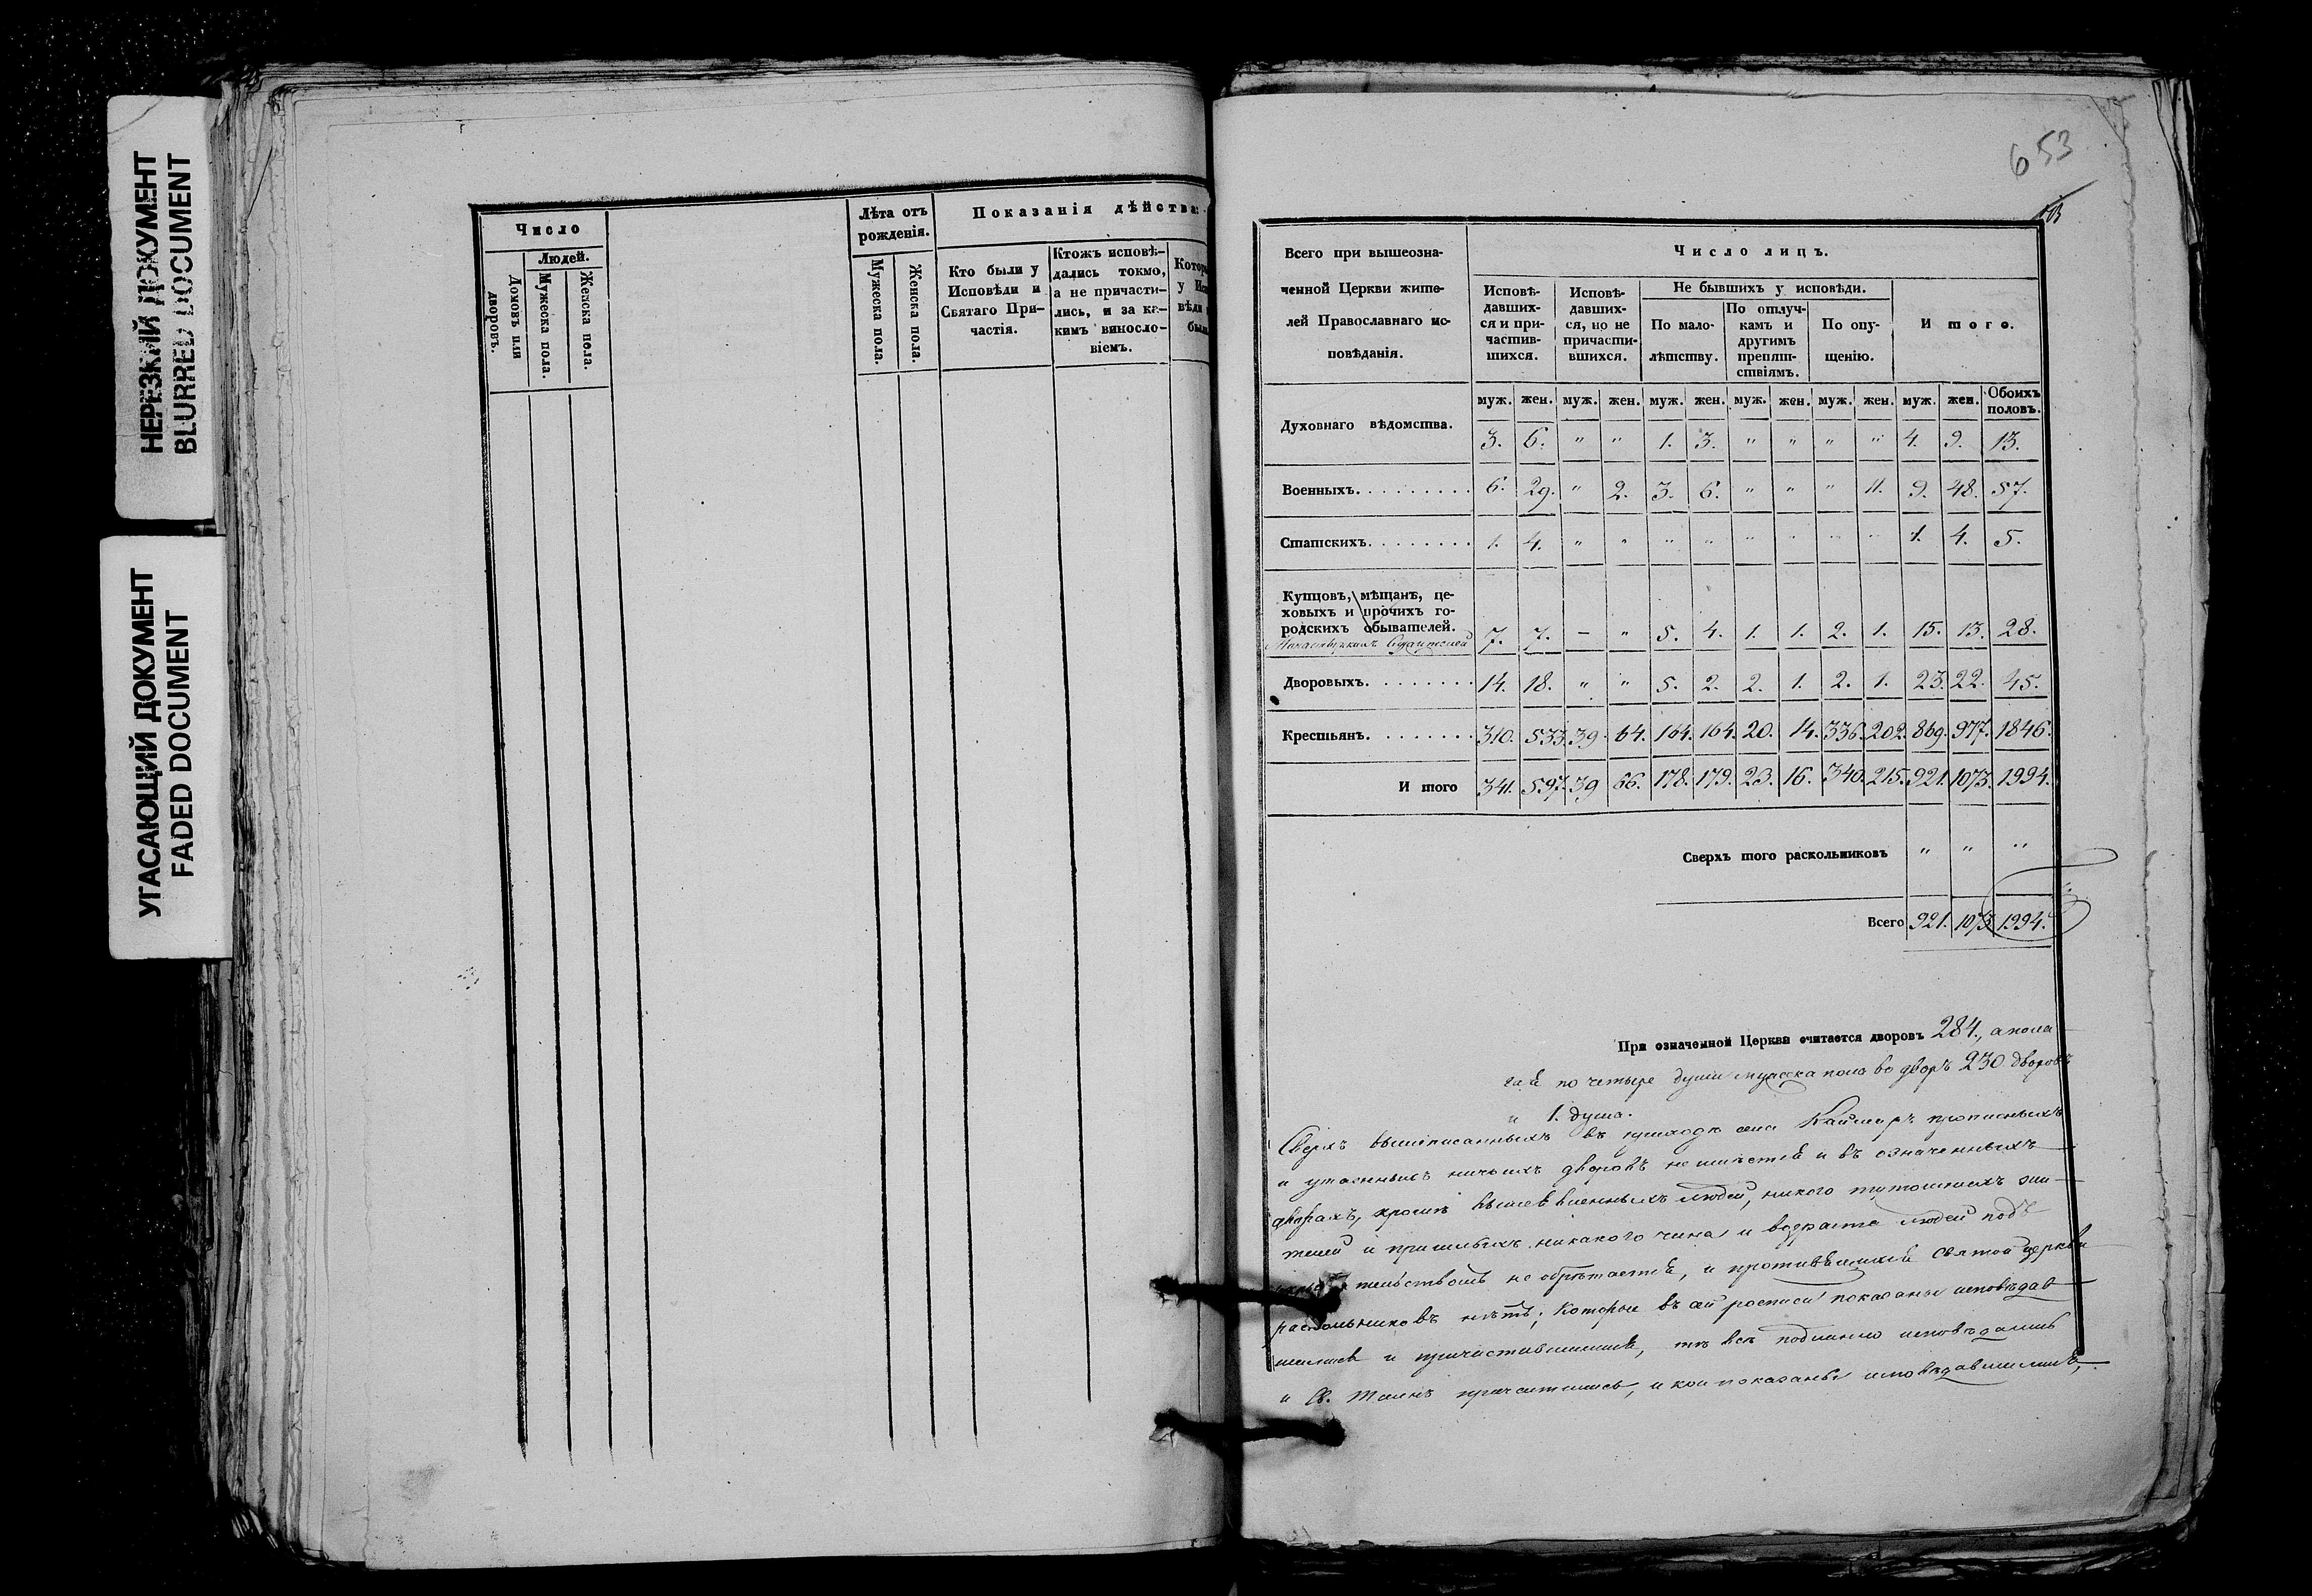 НЕРЕЗКИЙ ДОКУМЕНТ
BLURRED DOCUMENT
УГАСАЮЩИЙ ДОКУМЕНТ
FADED DOCUMENT
Число
Людей.
Домовъ или дворовъ.
Мужеска пола.
Женска пола.
Лѣта отъ рожденія.
Мужеска пола.
Женска пола.
Показанія дѣйства
Кто были у Исповѣди и Святаго Причастія.
Ктожъ исповѣ-
дались токмо,
а не причасти-
лись, и за ка-
кимъ виносло-
віемъ.
653
Всего при вышеозна-
ченной Церкви жите-
лей Православнаго ис-
повѣданія.
Число лицъ.
Исповѣ-
давших-
ся и при-
частив-
шихся.
Исповѣ-
давших-
ся, но не
причасти-
вшихся.
Не бывшихъ у исповѣди.
По мало-
лѣтству.
По отлуч-
камъ и
другимъ
препят-
ствіямъ.
По опу-
щенію.
И того.
муж. жен. муж. жен. муж. жен. муж. жен. муж. жен. муж. жен. Обоихъ половъ.
Духовнаго вѣдомства. 3. 6. " " 1. 3. " " " " 4. 9. 13.
Военныхъ. 6. 29. " 2. 3. 6. " " " 11. 9. 48. 57.
Статскихъ. 1. 4. " " " " " " " " 1. 4. 5.
Купцовъ, мѣщанъ, це-
ховыхъ и прочихъ го-
родскихъ обывателей.
7. 7. – " 5. 4. 1. 1. 2. 1. 15. 13. 28.
Дворовыхъ. 14. 18. " " 5. 2. 2. 1. 2. 1. 23. 22. 45.
Крестьянъ. 310. 533. 39. 64. 164. 164. 20. 14. 336. 202. 869. 977. 1846.
И того 341. 597. 39 66. 178. 179. 23. 16. 340. 215. 921. 1073. 1994.
Сверхъ того раскольниковъ " " "
Всего 921. 1073 1994.
При означенной Церкви считается дворовъ 284., а пола-
гая по четыре души мужеска пола во дворъ 230 дворовъ
и 1. душа.
Сверхъ вышеписанныхъ въ приходѣ села прописныхъ
и утаенныхъ ничьихъ дворовъ не имѣется и въ означенныхъ
дворахъ, кромѣ людей, никого тутошнихъ жи-
телей и пришлыхъ никакого чина и возраста людей подъ
не обрѣтается, и святой церкви
раскольниковъ нѣтъ; которые въ сей росписи показаны исповѣдав-
шимися и причастившимися, тѣ всѣ исповѣдались
и Св. Таинъ причастились, и кои показаны исповѣдавшимися,